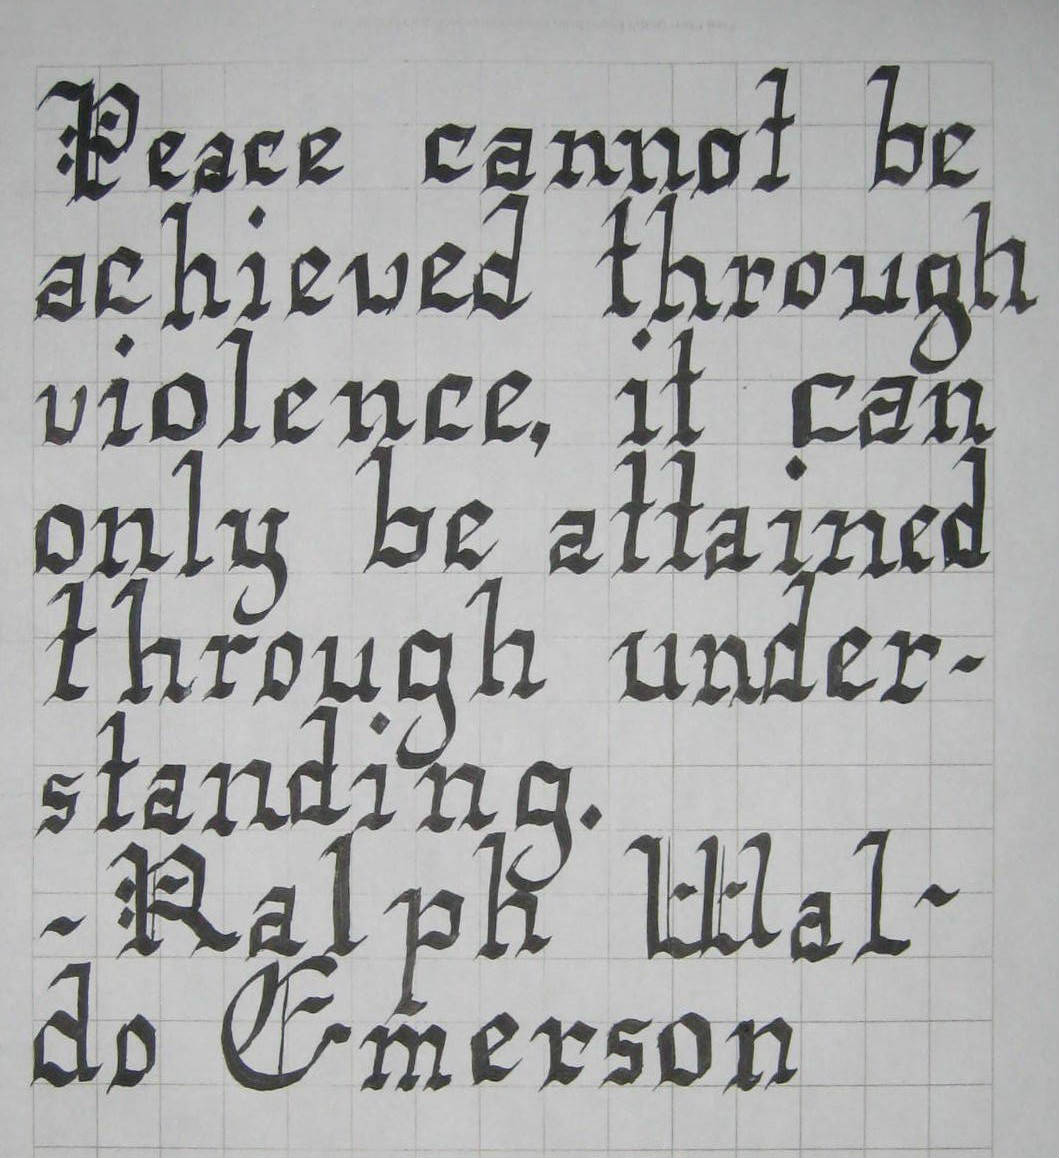 Peace cannot be
achieved through
violence, it can
only be attained
through under-
standing.
-Ralph Wal-
do Emerson